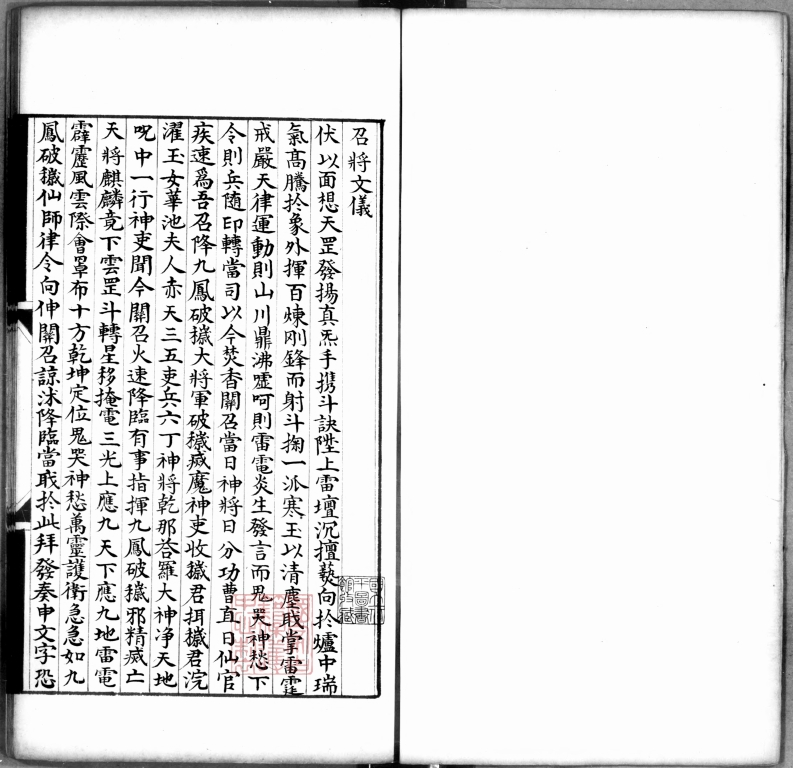 召將文儀
伏以面想天罡發揚真炁手携斗訣陞上雷壇沉擅爇向扵爐中瑞
氣髙騰扵象外揮百煉刚鋒而射斗掬一派寒玉以清塵戢掌雷霆
戒嚴天律運動則山川鼎沸噓呵則雷電炎生發言而鬼哭神愁下
令則兵随印轉當司以今焚香關召當日神將日分功曹直日仙官
疾速爲吾召降九鳳破穢大將軍破穢威魔神吏收穢君挕穢君浣
濯玉女華池夫人赤天三五吏兵六丁神將乾那荅羅大神净天地
呪中一行神吏聞今關召火速降臨有事指揮九鳳破穢邪精威亡
天將麒麟竟下雲罡斗轉星移掩電三光上應九天下應九地雷電
霹靂風雲際會罩布十方乾坤定位鬼哭神愁萬靈護衛急急如九
鳳破穢仙師律令向伸關召諒沐降臨當戢扵此拜發奏申文字恐